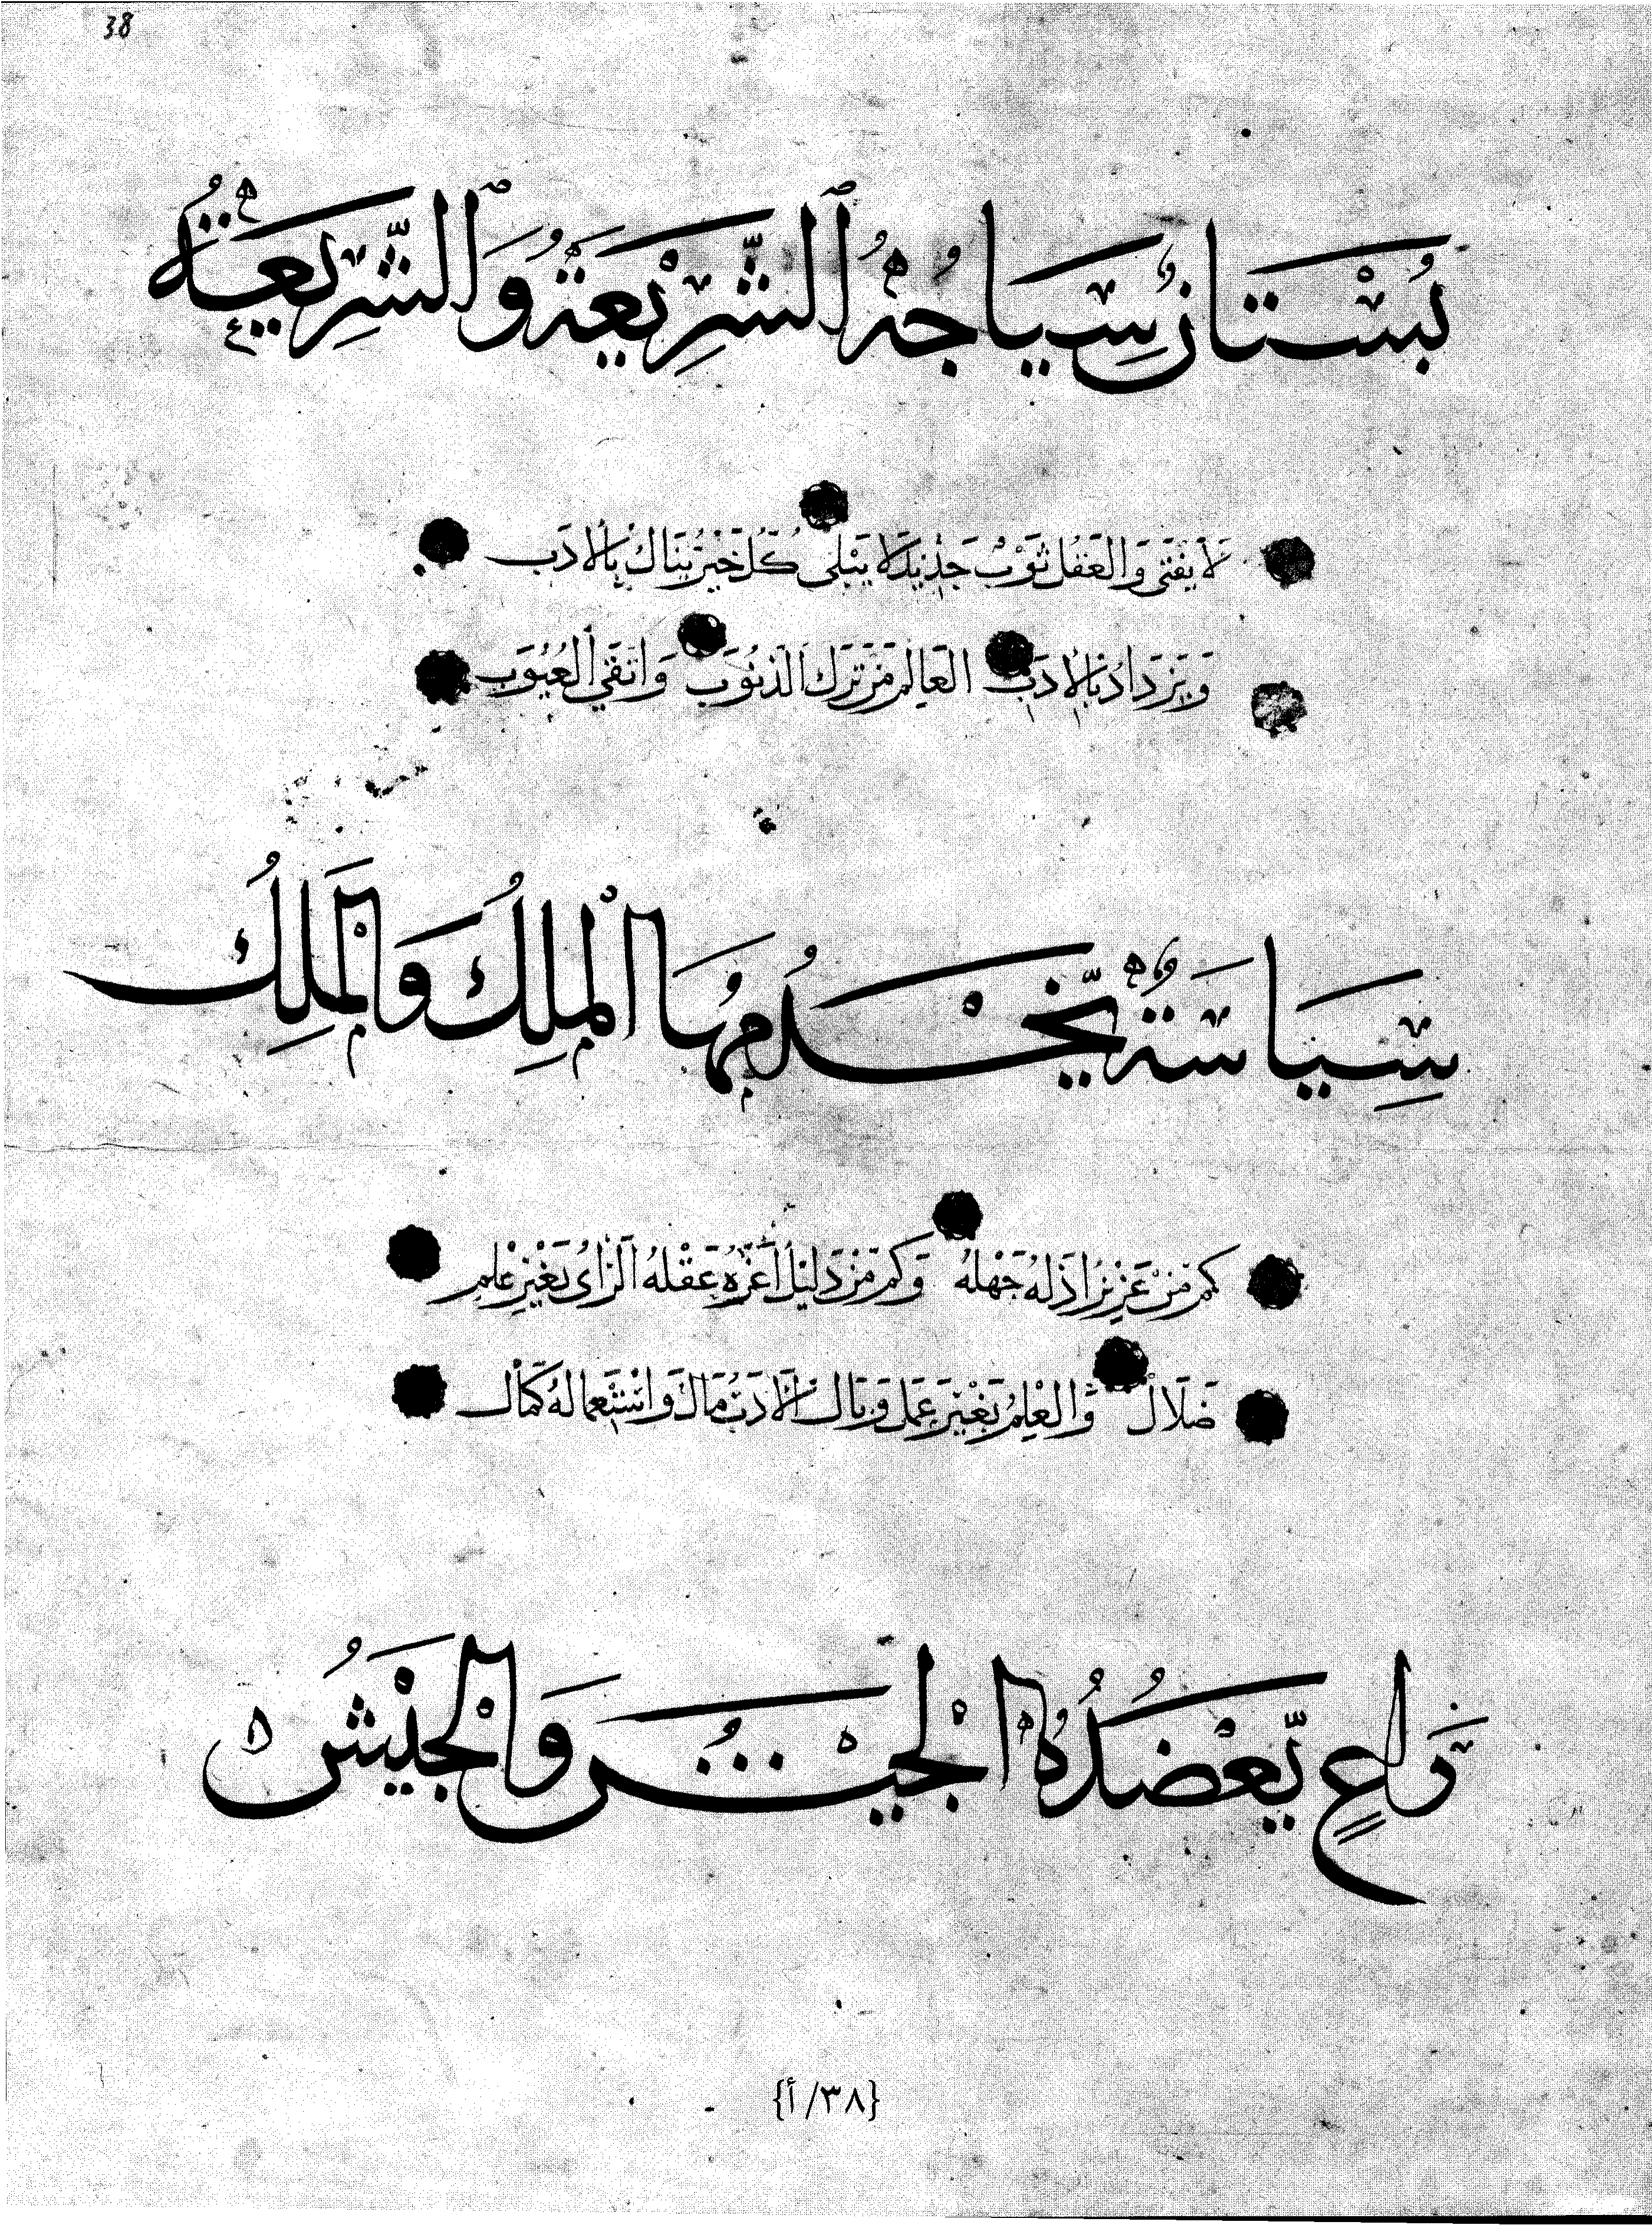 38
بُسْتَانٌ سِيَاجُهُ ٱلشَّرِيْعَةُ وَٱلشَّرِيعَةُ
لَا يَفْنَى وَالْعَقْلُ ثَوْبٌ جَدِيْدٌ لَا يَبْلَى كُلُّ خَيْرٍ يُنَالُ بِالْأَدَبِ
وَيَزْدَادُ بِالْأَدَبِ الْعَالِمُ مَنْ تَرَكَ الذُّنُوْبَ وَاتَّقَى الْعُيُوْبَ
سِيَاسَةٌ يَّخْدُمُهَا الْمَلِكُ وَالْمَلِكُ
كَمْ مِنْ عَزِيْزٍ اَذَلَّهُ جَهْلُهُ وَكَمْ مِنْ ذَلِيْلٍ اَعَزَّهُ عَقْلُهُ اَلرَّاىُ بِغَيْرِ عِلْمٍ
ضَلَالٌ وَالْعِلْمُ بِغَيْرِ عَمَلٍ وَبَالٌ اَلْأَدَبُ مَالٌ وَاسْتِعْمَالُهُ كَمَالٌ
رَاعٍ يَّعْضُدُهُ الْجَيْشُ وَالْجَيْشُ
{٣٨/أ}